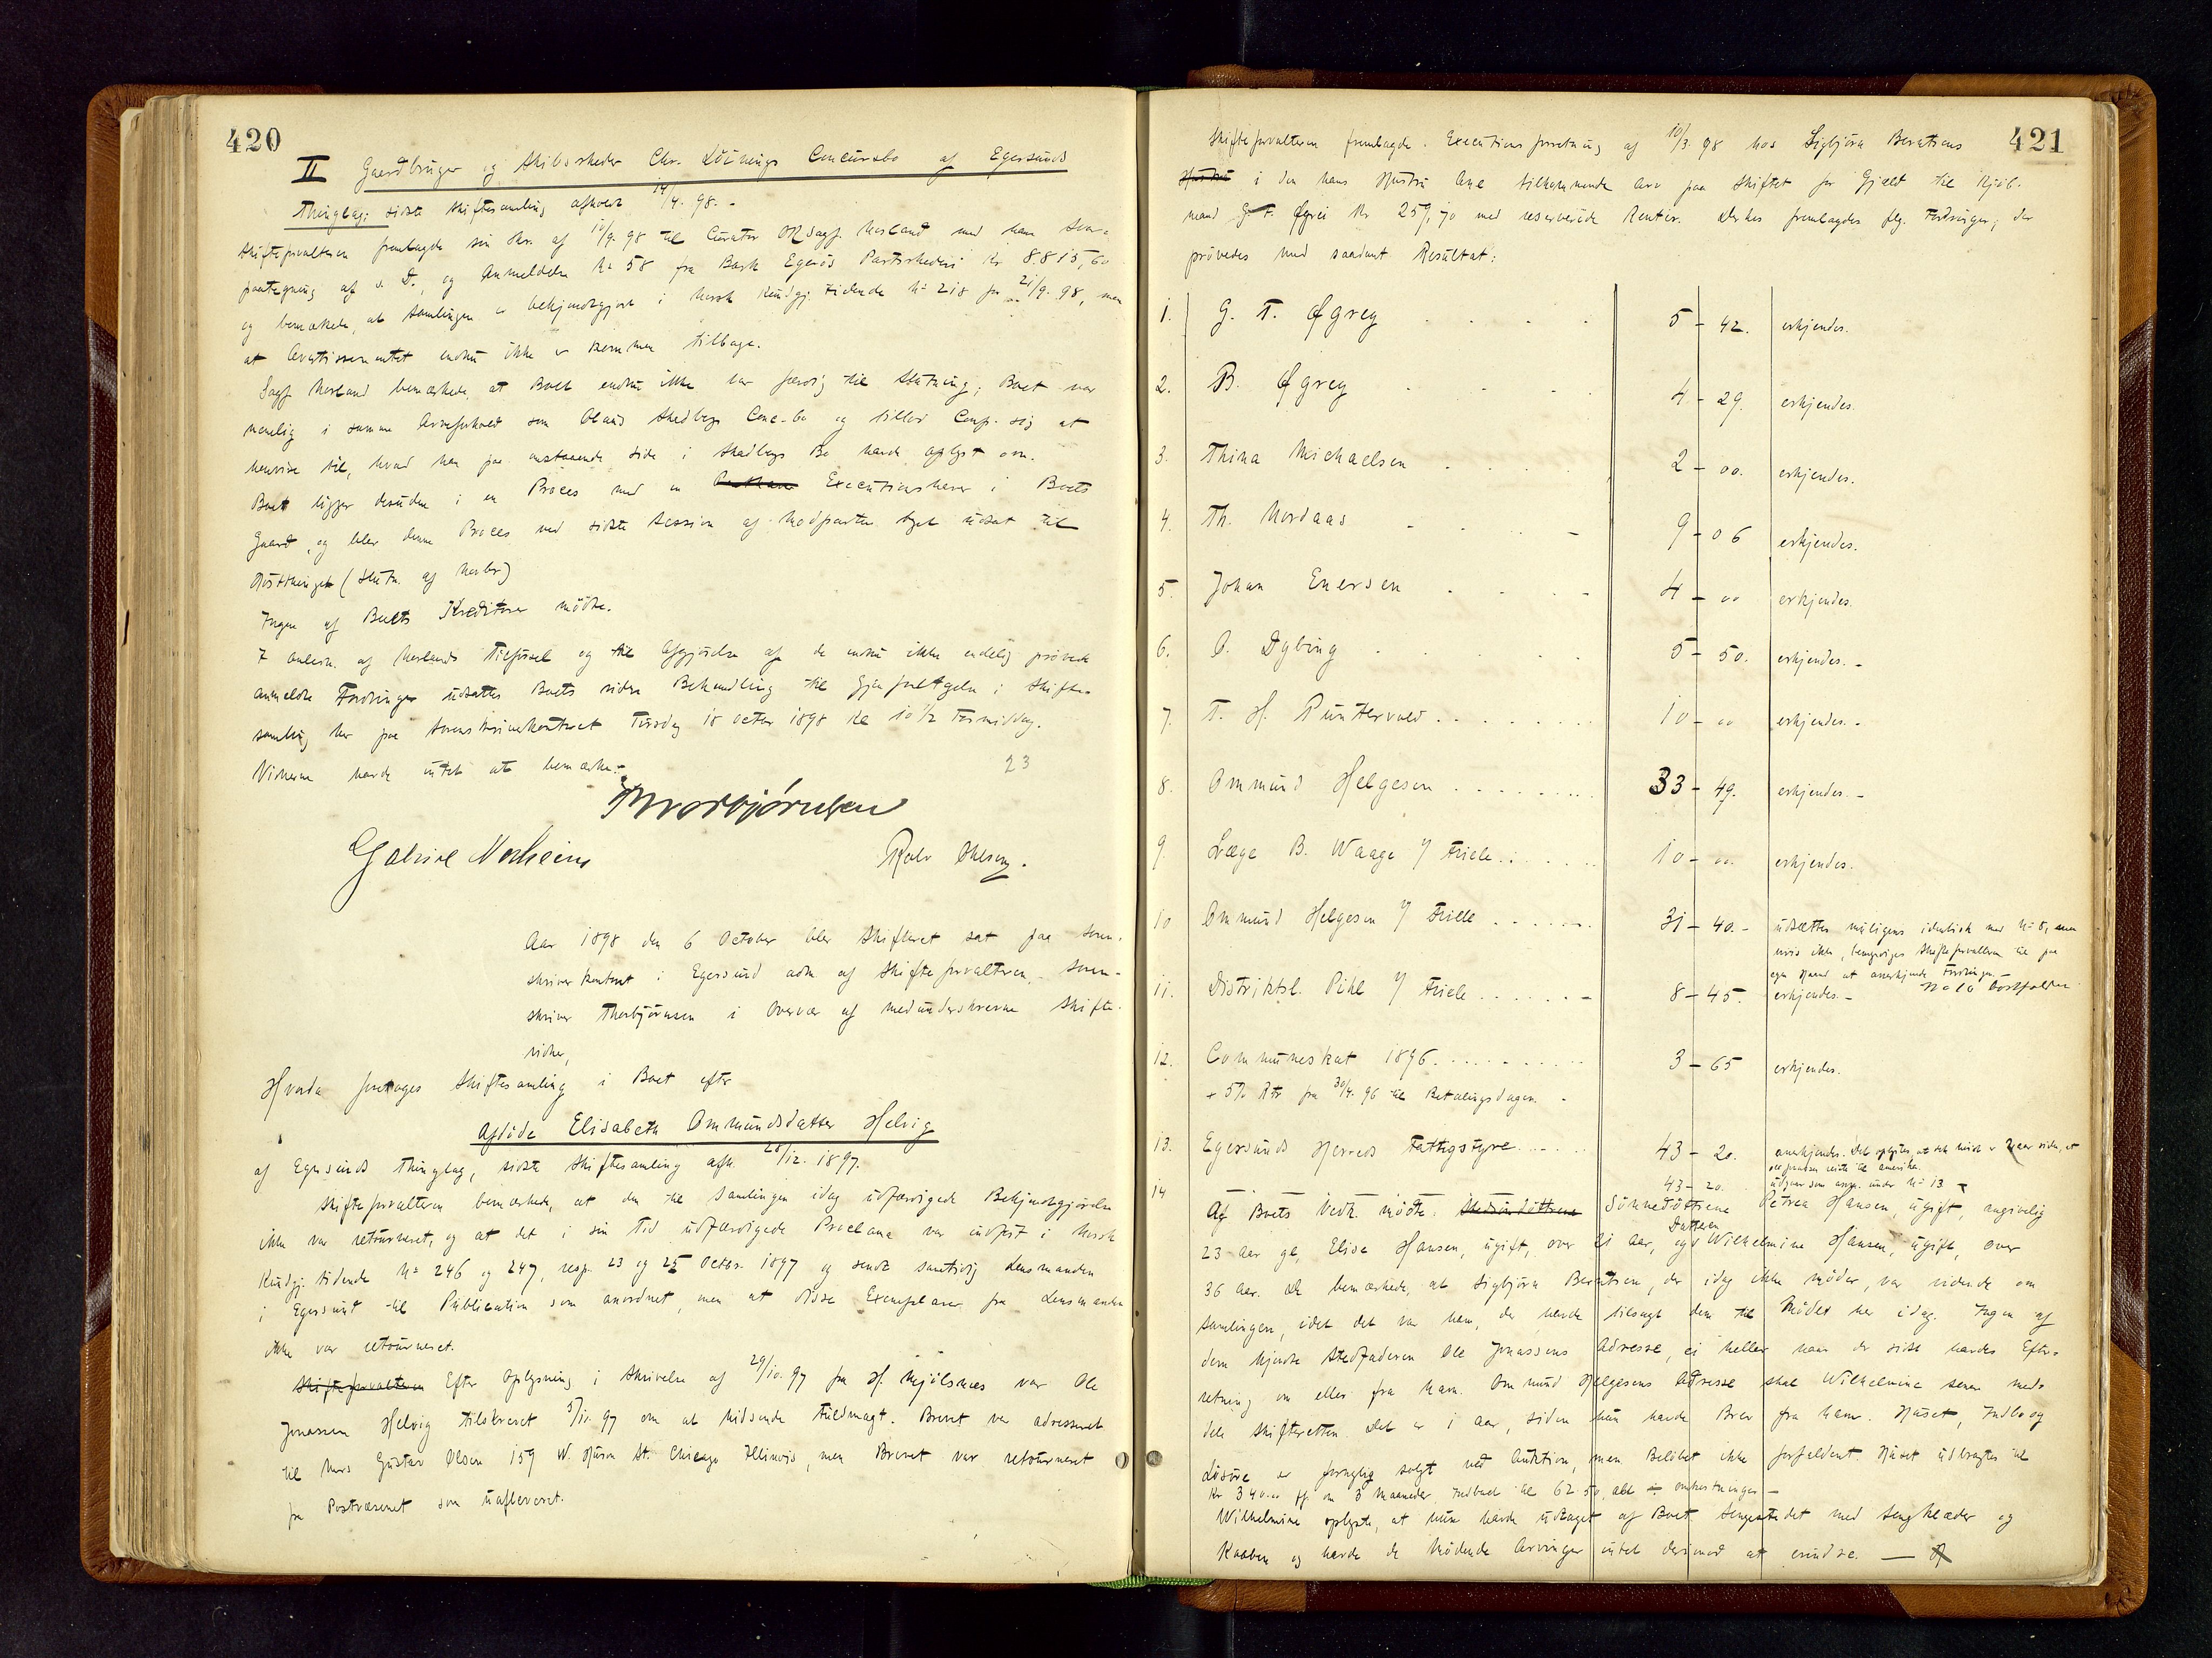 420
II Gaardbruger og Skibsrheder Chr. Löinings Concursbo af Egersunds
Thinglag; sidste Skiftesamling afholdt 14/4. 98. -
Skifteforvalteren fremlagde sin Skr. af 10/9. 98 til Curator ORSagf. Morland med hans Svar-
paategning af s. D., og Anmeldelse No 58 fra Bark Egerös Partsrhederi Kr 8.815,60
og bemærkede, at Samlingen er bekjendtgjort i Norsk Kundgj. tidende No 218 for 21/9. 98, men
at Avertissementet endnu ikke er kommen tilbage.
Sagf. Morland bemærkede, at Boet endnu ikke var færdig til Slutning; Boet var
nemlig i samme Arveforhold som Olaus Skadbergs Conc-bo og tillod Comp. sig at
henvise til, hvad han paa omstaaende Side i Skadbergs Bo havde oplyst om.
Boet ligger desuden i en Proces med en Executionshaver i Boets
Gaard, og blev denne Proces ved sidste Session af Modparten begt. udsat til
Höstthinget (Slutn. af Novbr)
Ingen af Boets Kreditorer mödte.
I Anledn. af Morlands Tilförsel og til Afgjörelse af de endnu ikke endelig prövede
anmeldte Fordringer udsattes Boets videre Behandling til Gjenfortagelse i Skifte-
samling her paa Sorenskriverkontoret Tirsdag 18 Octbr 1898 Kl 10 1/2 Formiddag.
Vidnerne havde intet at bemærke.-
23
Thorbjørnsen
Gabriel Nodheim
Aar 1898 den 6 October blev Skifteret sat paa Soren-
skriverkontoret i Egersund adm. af Skifteforvalteren, Soren-
skriver Thorbjörnsen i Overvær af medunderskrevne Skifte-
vidner,
Hvorda foretoges Skiftesamling i Boet efter
Afdöde Elisabeth Ommundsdatter Helvig
af Egersunds Thinglag, sidste Skiftesamling afh. 28/12. 1897.
Skifteforvalteren bemærkede, at den til Samlingen idag udfærdigede Bekjendtgjörelse
ikke var retourneret, og at det i sin Tid udfærdigede Proclama var indført i Norsk
Kundgj. tidende No 246 og 247, resp. 23 og 25 Octbr. 1897 og sendt samtidig Lensmanden
i Egersund til Publication som anordnet, men at disse Exemplarer fra Lensmanden
ikke var retourneret.
Skifteforvalteren Efter Oplysning i Skrivelse af 29/10. 97 fra H. Mjölsnes var Ole
Jonassen Helvig tilskrevet 5/11. 97 om at hidsende Fuldmagt. Brevet var adresseret
til Mrs Gustav Olsen 159 W. Huron St. Chicago Illinois, men Brevet var retourneret
fra Postvæsenet som uafleveret.
421
Skifteforvalteren fremlagde. Executionsforretning af 10/3. 98 hos Sigbjörn Berntsens
Hustru i den hans Hustru Ane tilkommende Arv paa Skiftet for Gjæld til Kjöb-
mand G. T. Øgrei Kr. 259,70 med reserverede Renter. Derhos fremlagdes flg. Fordringer, der
prövedes med saadant Resultat:
1. G. T. Øgrey 5 - 42. erkjendes.
2. B. Øgrey 4 - 29. erkjendes.
3. Thina Michaelsen 2 - 00. erkjendes.
4. Th. Nordaas 9 - 06 erkjendes.
5. Johan Enersen 4 - 00 erkjendes.
6. O. Dybing 5 - 50. erkjendes. -
7. T. H. Puntervold 10 - 00 erkjendes. -
8. Ommund Helgesen 33 - 49. erkjendes. -
9. Læge B. Waage v/ Friele 10 - 00. erkjendes.
10 Ommund Helgesen v/ Friele 31 - 40. - udsættes muligens identisk med No 8, men
hvis ikke, bemyndiges Skifteforvalteren til paa
egen Haand at anerkjende Fordringen. -
No 10 bortfalder
11. Distriktsl. Pihl v/ Friele 8 - 45. erkjendes. -
12. Communeskat 1896 3 - 65 erkjendes.
+ 5% Rtr fra 30/4. 96 til Betalingsdagen. -
13. Egersunds Herreds Fattigstyre 43 - 20. anerkjendes. Det oplystes, at det mindst er 2 aar siden, at
Ole Jonassen reiste til Amerika.
14 — — — 43 - 20. udgaar som anf. under No 13
Af Boets Vedk. mödte. Sönnedöttrene Petrea Hansen, ugift, angivelig
23 Aar gl, Elise Hansen, ugift, over 21 Aar, og Datteren Wilhelmine Hansen, ugift, over
36 Aar. De bemærkede, at Sigbjörn Berntsen, der idag ikke möder, var vidende om
Samlingen, idet det var ham, der havde tilsagt dem til Mödet her idag. Ingen af
dem kjendte Stedfaderen Ole Jonassens Adresse, ei heller naar de sidst havdes Efter-
retning om eller fra ham. Ommund Helgesens Adresse skal Wilhelmine senere med-
dele Skifteretten. Det er i Aar, siden hun havde Brev fra ham. Huset, Indbo og
Lösöre er forsvarlig solgt ved Auktion, men Belöbet ikke forfaldent. Huset udbragtes til
Kr 340.00 pg. om 3 Maaneder. Indboet til 62.50, alt ÷ omkostninger -
Wilhelmine oplyste, at hun havde udtaget af Boet Sengestedet med Sengklæder og
Kaaben og havde de mödende Arvinger intet derimod at erindre. —